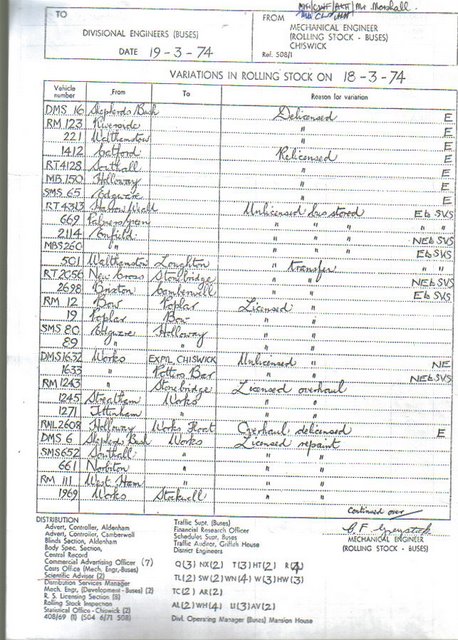 Mr Marshall.
TO
DIVISIONAL ENGINEERS (BUSES)
DATE 19-3-74
FROM
MECHANICAL ENGINEER
(ROLLING STOCK - BUSES)
CHISWICK
Ref. 508/1
VARIATIONS IN ROLLING STOCK ON 18-3-74
Vehicle number From To Reason for variation
DMS 16 Shepherds Bush Delicensed E
RM 123 Riverside " E
221 Walthamstow " E
1412 Catford Relicensed E
RT4128 Southall " E
MB 150 Holloway " E
SMS 65 Edgware " E
RT4343 Harrow Weald Unlicensed bus stored Eb SVS
669 Palmers Green " " " " "
2114 Enfield " " " NEb SVS
MBS260 " " " " Eb SVS
501 Walthamstow Loughton " transfer " "
RT2056 New Cross Stonebridge " " NEb SVS
2698 Brixton Camberwell " " Eb SVS
RM 12 Bow Poplar Licensed "
19 Poplar Bow " "
SMS 80 Edgware Holloway " "
89 " " " "
DMS1632 Works EXPL CHISWICK Unlicensed " NE
1633 " Potters Bar " " NEb SVS
RM 1243 " Stonebridge Licensed overhaul
1245 Streatham Works " "
1271 Tottenham " " "
RML2608 Holloway Works Float Overhaul, delicensed E
DMS 6 Shepherds Bush Works Licensed repaint
SMS652 Southall " " "
661 Norbiton " " "
RM 111 West Ham " " "
1969 Works Stockwell " "
continued over
MECHANICAL ENGINEER
(ROLLING STOCK - BUSES)
DISTRIBUTION
Advert, Controller, Aldenham
Advert, Controller, Camberwell
Blinds Section, Aldenham
Body Spec. Section,
Central Record
Commercial Advertising Officer (7)
Costs Office (Mech. Engr.-Buses)
Scientific Adviser (2)
Distribution Services Manager
Mech. Engr. (Development - Buses) (2)
R. S. Licensing Section (8)
Rolling Stock Inspection
Statistical Office - Chiswick (2)
408/69 (1) (504 6/71 508)
Traffic Supt. (Buses)
Financial Research Officer
Schedules Supt. Buses
Traffic Auditor, Griffith House
District Engineers
Q(3) NX(2) T(3) HT(2) R(4)
TL(2) SW(2) WN(4) W(3) HW(3)
TC(2) AR(2)
AL(2) WH(4) LI(3) AV(2)
Divl. Operating Manager (Buses) Mansion House